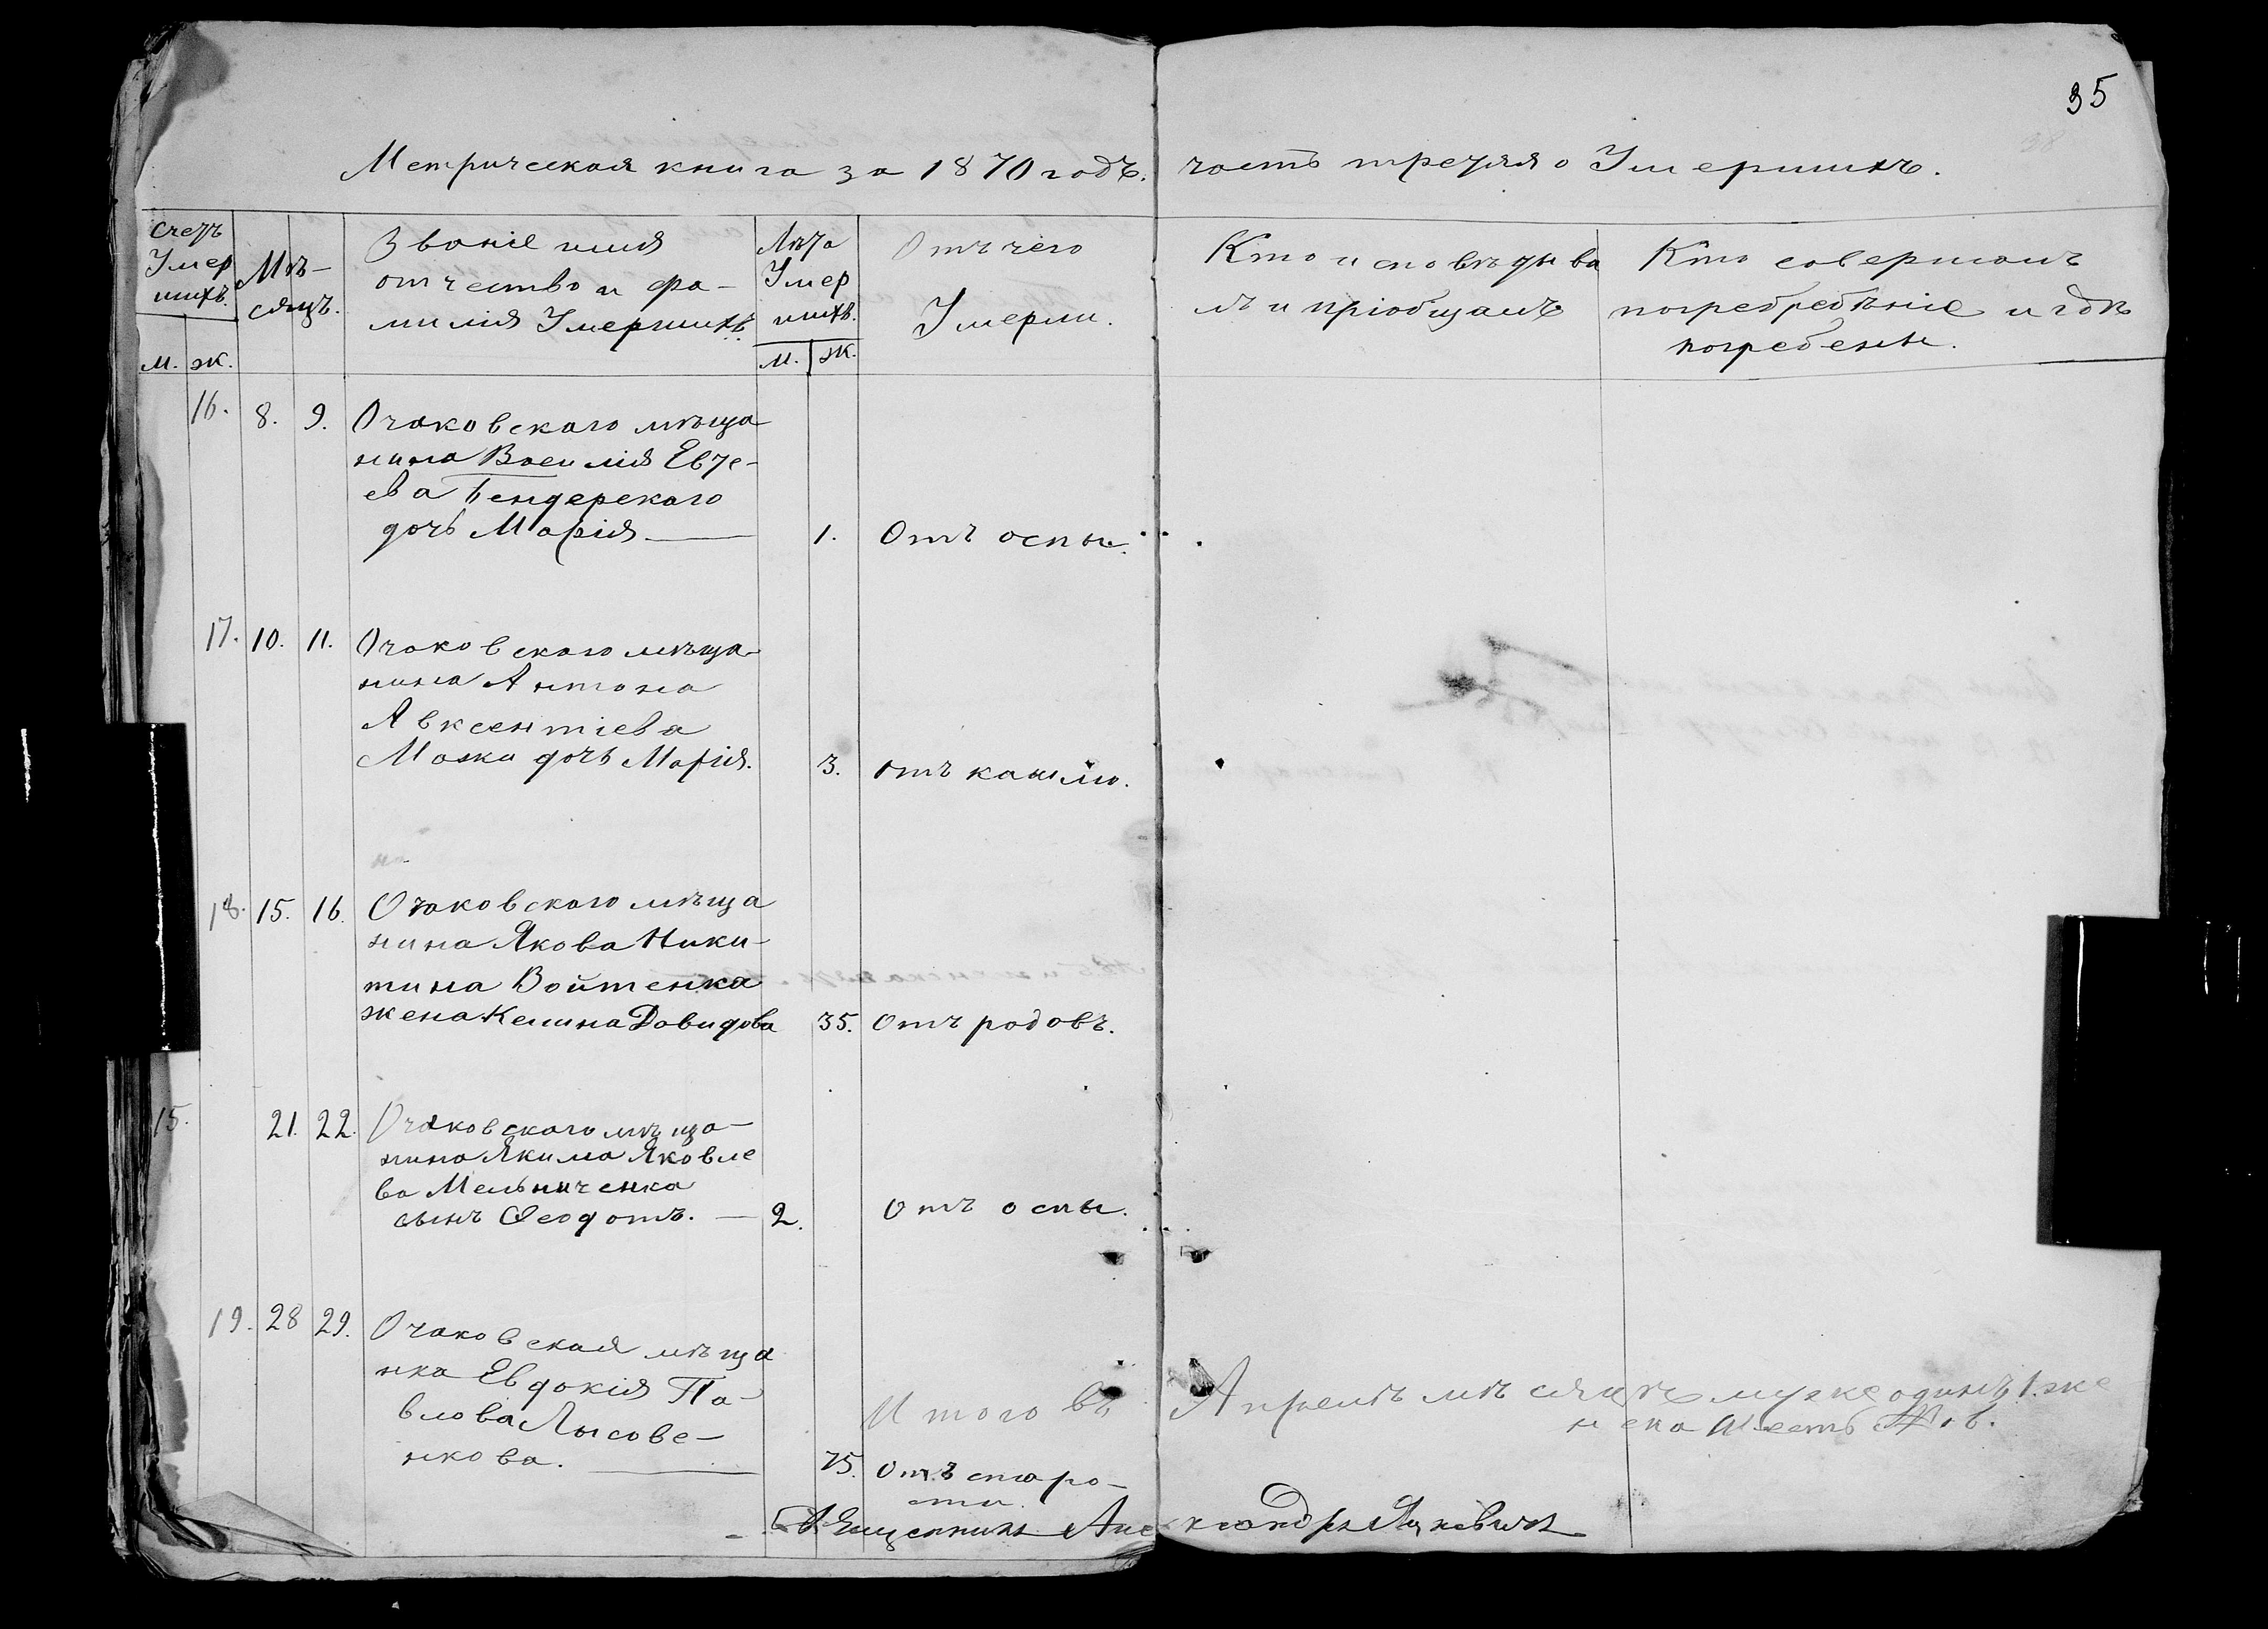 35
Метрическая книга за 1870 годъ. часть третяя о Умершихъ.
Счетъ
Умер
шихъ.
м. ж.
Мѣ-
сяцъ.
Званіе имя
отчество и фа-
милія Умершихъ.
Лѣта
Умер
шихъ.
м. ж.
Отъ чего
Умерли.
Кто исповѣдыва
лъ и пріобщалъ
Кто совершалъ
погребребѣніе и гдѣ
погребены.
16. 8. 9. Очаковскаго мѣща
нина Василія Евте-
ева Бендерскаго
дочь Марія. 1. Отъ оспы.
17. 10. 11. Очаковскаго мѣща-
нина Антона
Авксентіева
Мазки дочь Марія. 3. отъ кашлю.
18. 15. 16. Очаковскаго мѣща
нина Якова Ники-
тина Войтенка
жена Келина Давидова 35. Отъ родовъ.
15. 21. 22. Очаковскаго мѣща-
нина Якима Яковле
ва Мельниченка
сынъ Ѳеодотъ. — 2. Отъ оспы.
19. 28 29. Очаковская мѣща
нка Евдокія Па-
влова Лысове-
нкова. 75. Отъ старо-
сти.
Итого въ Апрелѣ мѣсяцѣ муже одинъ 1. же
нска шесть
Священникъ Александръ Яцкевичъ